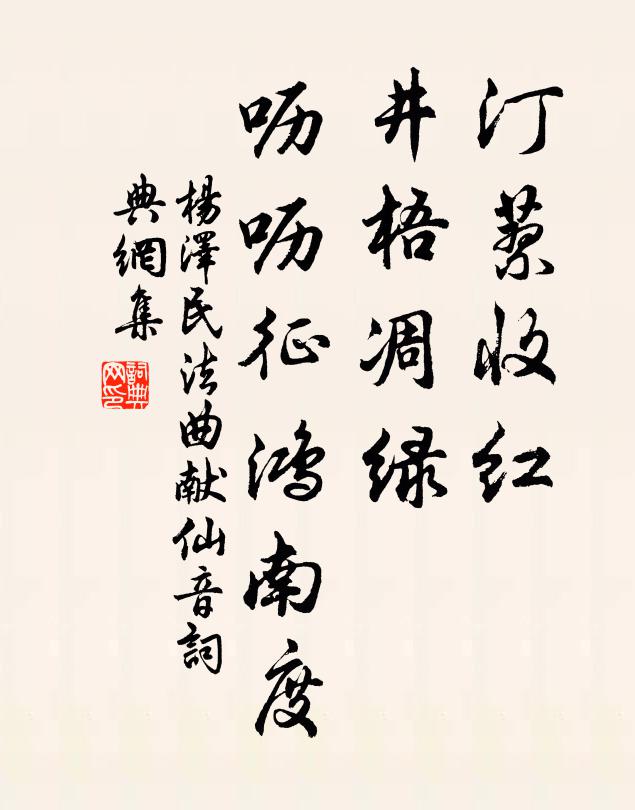 汀蓼收红
井梧凋绿
呖呖征鸿南度
楊澤民法曲献仙音詞
典網集
詞典网印